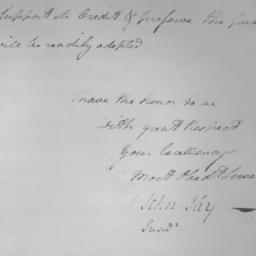 Support its Credit & preserve the
will be readily adopted
I have the Honor to be
with great Respect
Your Excellency's
Most Obedt Serva
John Jay
Presidt